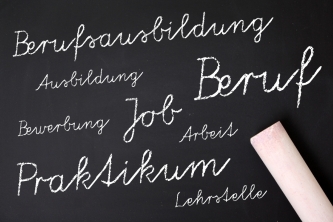 Berufsausbildung
Ausbildung
Beruf
Job
Bewerbung
Arbeit
Praktikum
Lehrstelle